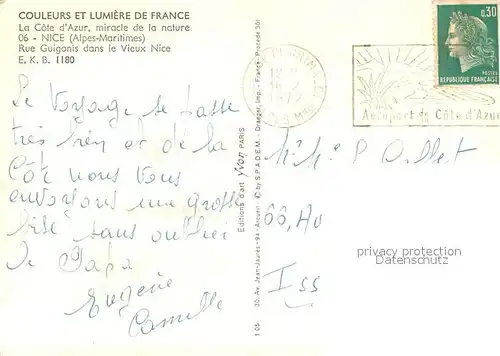 COULEURS ET LUMIÈRE DE FRANCE
La Côte d'Azur, miracle de la nature
06 - NICE (Alpes-Maritimes)
Rue Guigonis dans le Vieux Nice
E. K. B. 1180
0,30
POSTES
REPUBLIQUE FRANÇAISE
Aéroport de Côte d'Azur
Le Voyage se passe
très bien et de la
Côte nous vous
envoyons une grosse
bise sans oublier
le Papa
Eugénie
Camille
Editions d'art yvon PARIS
30, Av. Jean-Jaurès - 94 - Arcueil - © by S.P.A.D.E.M. - Draeger, Imp. - France - Procédé 301
1 05
P
66, Av
Iss
privacy protection
Datenschutz